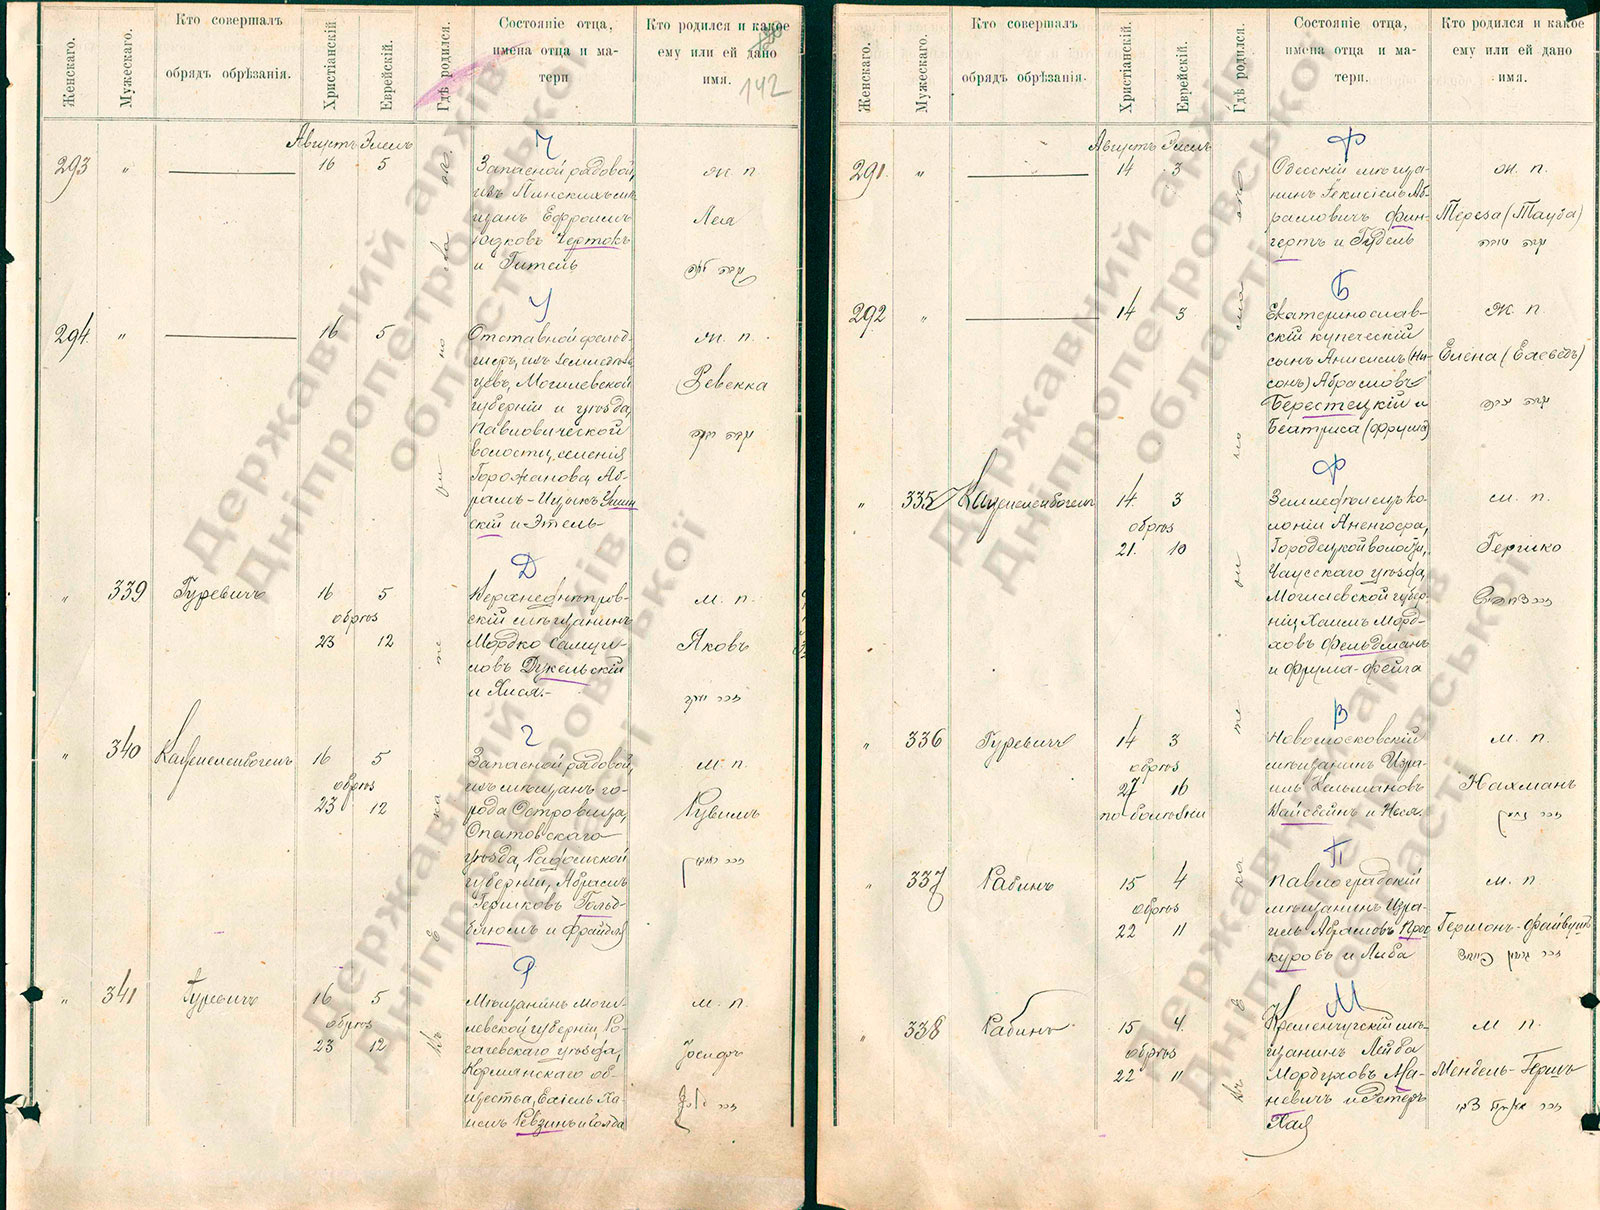 Женскаго.
Мужескаго.
Кто совершалъ
обрядъ обрѣзанія.
Христіанскій
Еврейскій.
Гдѣ родился.
Состояніе отца,
имена отца и ма-
тери
Кто родился и какое
ему или ей дано
имя.
142
Августъ Элелъ
Ч
293 " 16 5
Запасной рядовой,
изъ Пинскихъ мѣ-
щанъ Ефроимъ
Юдковъ Чертокъ
и Гитель
Ж. п.
Лея
У
294 " 16 5
Отставной фельд-
шеръ, изъ земледѣль
цевъ, Могилевской
губерніи и уѣзда,
Павловической
волости, селенія
Горожанова, Аб-
рамъ-Ицыкъ Ушин
скій и Этель
Ж. п.
Ревекка
Д
" 339 Гуревичъ 16 5
обрѣз
23 12
Верхнеднѣпров-
скій мѣщанинъ
Мордко Самуи-
ловъ Дукельскій
и Хися.
М. п.
Яковъ
Г
" 340 Каценеленбогенъ 16 5
обрѣз
23 12
Запасной рядовой,
изъ мѣщанъ го-
рода Островца,
Опатовскаго
уѣзда, Радомской
губерніи, Абрамъ
Гершковъ Гольд-
блюмъ и Фрайдля
М. п.
Рувимъ
Р
" 341 Гуревичъ 16 5
обрѣз
23 12
Мѣщанинъ Моги-
левской губерніи, Ро-
гачевскаго уѣзда,
Кормянскаго об-
щества, Ехіель Ха-
имъ Ревзинъ и Голда
М. п.
Іосифъ
יוסף
въ Екатеринославѣ
Женскаго.
Мужескаго.
Кто совершалъ
обрядъ обрѣзанія.
Христіанскій.
Еврейскій.
Гдѣ родился.
Состояніе отца,
имена отца и ма-
тери.
Кто родился и какое
ему или ей дано
имя.
Августъ Элелъ
Ф
291 " 14 3
Одесскій мѣща-
нинъ Іекисіель Аб-
рамовичъ Фин-
гертъ и Гудель
Ж. п.
Тереза (Тауба)
Б
292 " 14 3
Екатеринослав-
скій купеческій
сынъ Анисимъ (Ни-
сонъ) Абрамовъ
Берестецкій и
Беатриса (Фрума)
Ж. п
Елена (Елеведъ)
Ф
" 335 Каценеленбогенъ 14 3
обрѣз
21. 10
Земледѣлецъ ко-
лоніи Аненгофа,
Городецкой волости,
Чаусскаго уѣзда,
Могилевской губер-
ніи Хаимъ Морд-
ховъ Фельдманъ
и Фрума-Фейга
М. п.
Гершко
В
" 336 Гуревичъ 14 3
обрѣз
27 16
по болѣзни
Новомосковскій
мѣщанинъ Изра-
иль Кельмановъ
Вайсбейнъ и Неся.
М. п.
Нахманъ
П
" 337 Рабинъ 15 4
обрѣз
22 11
Павлоградскій
мѣщанинъ Изра-
иль Абрамовъ Прос
куровъ и Либа
М. п
Гершонъ-Файвушъ
М
" 338 Рабинъ 15 4.
обрѣз
22 11
Кременчугскій мѣ-
щанинъ Лейба
Мордуховъ Ма-
невичъ и Эстеръ
Хая
М п.
Мендель-Гершъ
въ Екатеринославѣ
Державний архів
Дніпропетровської
області
Державний архів
Дніпропетровської
області
Державний архів
Дніпропетровської
області
Державний архів
Дніпропетровської
області